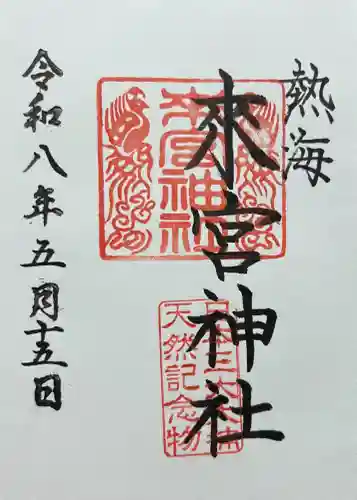 熱海
來宮神社
令和八年五月十五日
來宮神社
日本三大樟
天然記念物